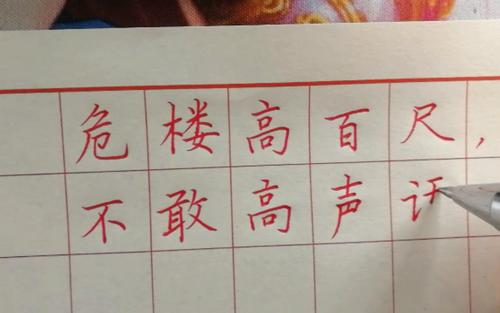 危楼高百尺，
不敢高声